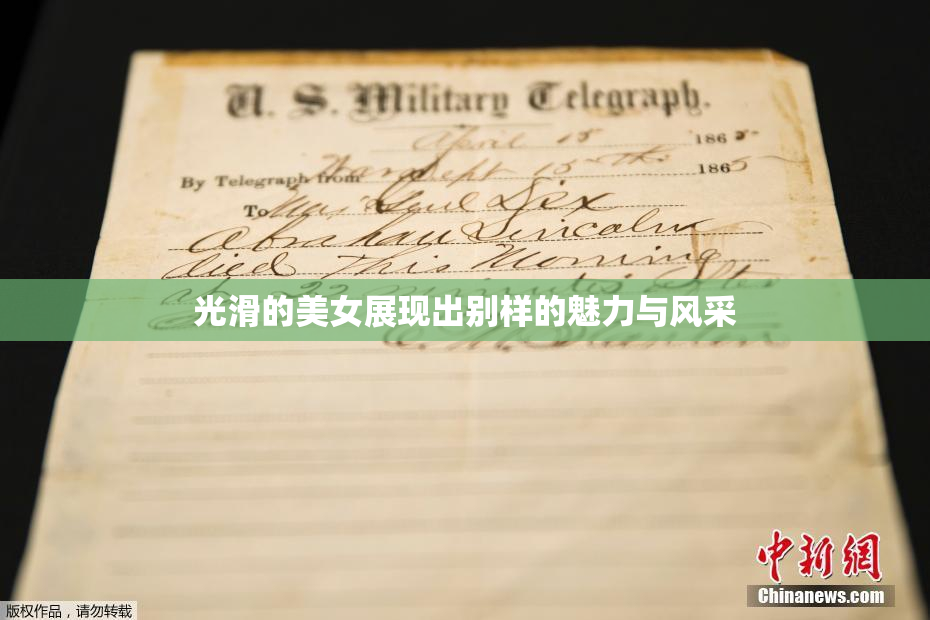 U. S. Military Telegraph.
April 15 1865
By Telegraph from War Dept 15th 1865
To Maj Genl Dix
Abraham Lincoln
died This Morning
at 22 minutes after
光滑的美女展现出别样的魅力与风采
E. M. Stanton
中新网
Chinanews.com
版权作品，请勿转载